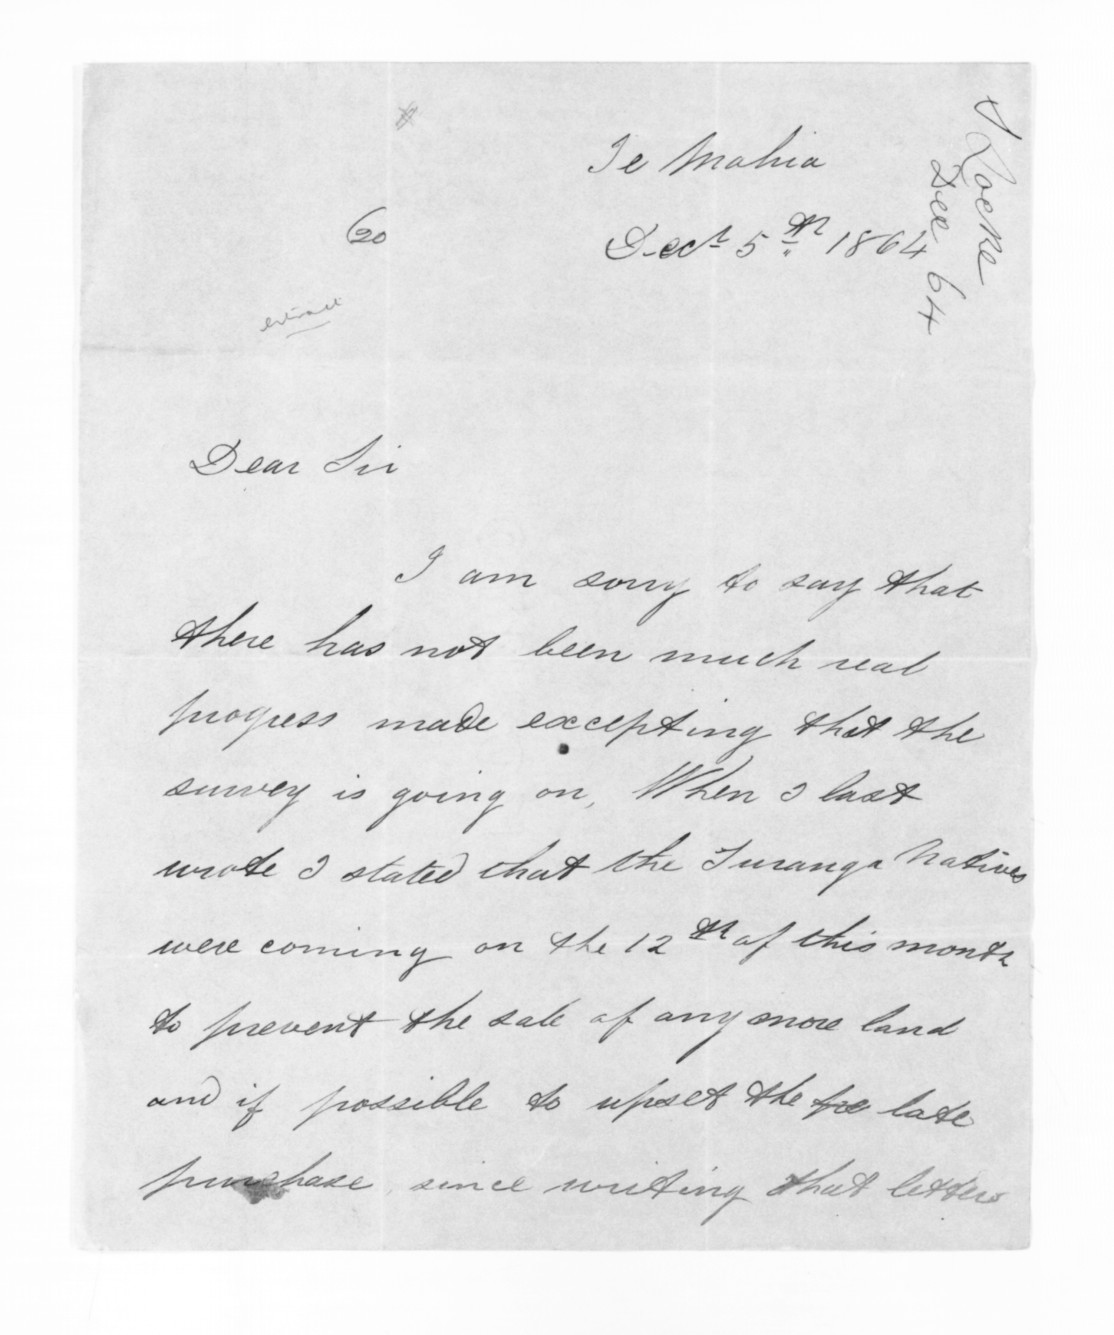 Te Mahia
Decr 5th 1864
S Locke
Dec 64
20
extract
Dear Sir
I am sorry to say that
there has not been much real
progress made excepting that the
survey is going on, When I last
wrote I stated that the Turanga Natives
were coming on the 12th of this month
to prevent the sale of any more land
and if possible to upset the late
purchase, since writing that letter